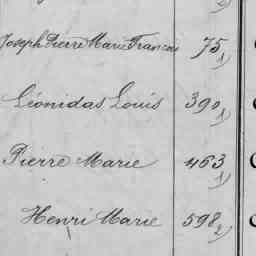 Joseph Pierre Marie Francois 75 1)
Léonidas Louis 390 1)
Pierre Marie 463 1)
Henri Marie 598 2)